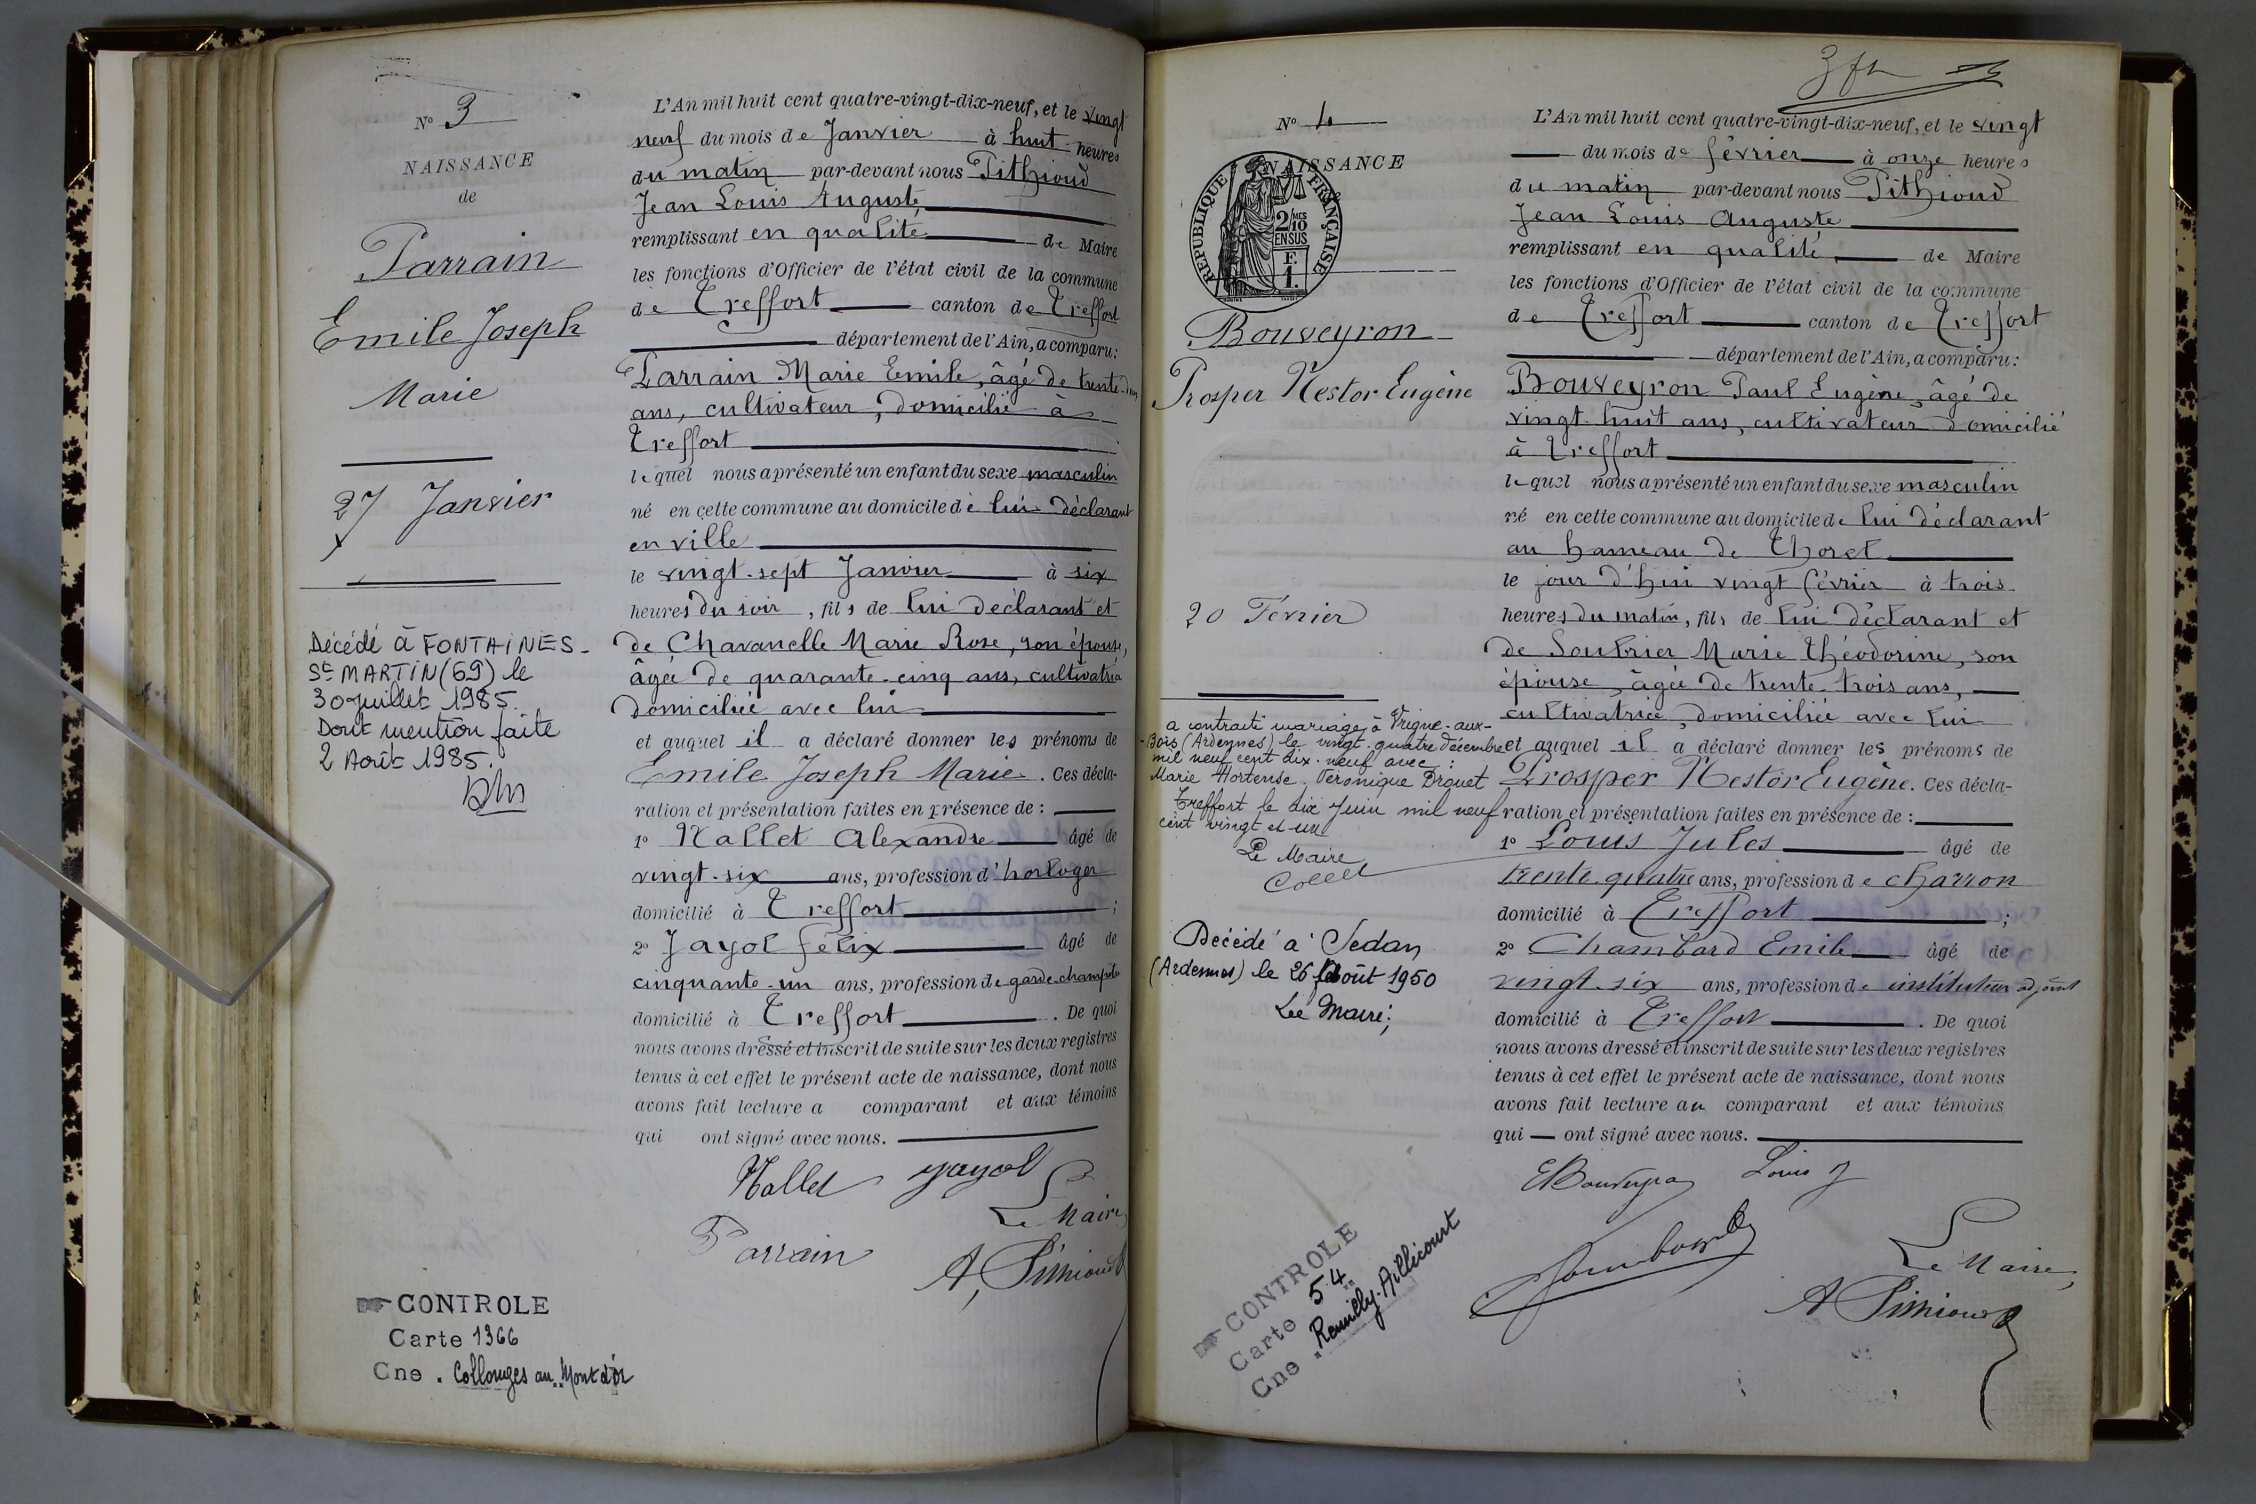 N° 3
NAISSANCE
de
Parrain
Emile Joseph
Marie
27 Janvier
Décédé à FONTAINES-
St MARTIN (69) le
30 Juillet 1985.
Dont mention faite
2 Août 1985.
CONTROLE
Carte 1366
Cne. Collonges au Mont d'Or
L'An mil huit cent quatre-vingt-dix-neuf, et le vingt
neuf du mois de Janvier à huit heures
du matin par-devant nous Pithioud
Jean Louis Auguste
remplissant en qualité de Maire
les fonctions d'Officier de l'état civil de la commune
de Treffort canton de Treffort
département de l'Ain, a comparu:
Parrain Marie Emile, âgé de trente-
ans, cultivateur, domicilié à
Treffort
lequel nous a présenté un enfant du sexe masculin
né en cette commune au domicile de lui déclarant
en ville
le vingt-sept Janvier à six
heures du soir, fils de lui déclarant et
de Chavanelle Marie Rose, son épouse,
âgée de quarante-cinq ans, cultivatrice
domiciliée avec lui
et auquel il a déclaré donner les prénoms de
Emile Joseph Marie. Ces décla-
ration et présentation faites en présence de :
1° Nallet Alexandre âgé de
vingt-six ans, profession d'horloger
domicilié à Treffort ;
2° Jayol Félix âgé de
cinquante-un ans, profession de garde-champêtre
domicilié à Treffort. De quoi
nous avons dressé et inscrit de suite sur les deux registres
tenus à cet effet le présent acte de naissance, dont nous
avons fait lecture a comparant et aux témoins
qui ont signé avec nous.
Nallet Jayol
Le Maire,
Parrain
A. Pithioud
N° 4
NAISSANCE
REPUBLIQUE FRANÇAISE
2/10 MES
EN SUS
F.
1.
Bouveyron
Prosper Nestor Eugène
20 Février
a contracté mariage à Vrigne-aux-
-Bois (Ardennes) le vingt-quatre décembre
mil neuf cent dix-neuf avec :
Marie Hortense Véronique Driguet
Treffort le dix Juin mil neuf
cent vingt et un
Le Maire
Collet
Décédé à Sedan
(Ardennes) le 26 Août 1950
Le Maire;
CONTROLE
Carte 54
Cne Remilly-Aillicourt
L'An mil huit cent quatre-vingt-dix-neuf, et le vingt
du mois de février à onze heures
du matin par-devant nous Pithioud
Jean Louis Auguste
remplissant en qualité de Maire
les fonctions d'Officier de l'état civil de la commune
de Treffort canton de Treffort
département de l'Ain, a comparu:
Bouveyron Paul Eugène, âgé de
vingt-huit ans, cultivateur domicilié
à Treffort
lequel nous a présenté un enfant du sexe masculin
né en cette commune au domicile de lui déclarant
au hameau de Thoret
le jour d'hui vingt février à trois
heures du matin, fils de lui déclarant et
de Soubrier Marie Théodorine, son
épouse, âgée de trente-trois ans,
cultivatrice, domiciliée avec lui
et auquel il a déclaré donner les prénoms de
Prosper Nestor Eugène. Ces décla-
ration et présentation faites en présence de :
1° Louis Jules âgé de
trente quatre ans, profession de charron
domicilié à Treffort ;
2° Chambard Emile âgé de
vingt-six ans, profession de instituteur adjoint
domicilié à Treffort. De quoi
nous avons dressé et inscrit de suite sur les deux registres
tenus à cet effet le présent acte de naissance, dont nous
avons fait lecture au comparant et aux témoins
qui ont signé avec nous.
EBouveyron Louis J
Chambard
Le Maire,
A Pithioud